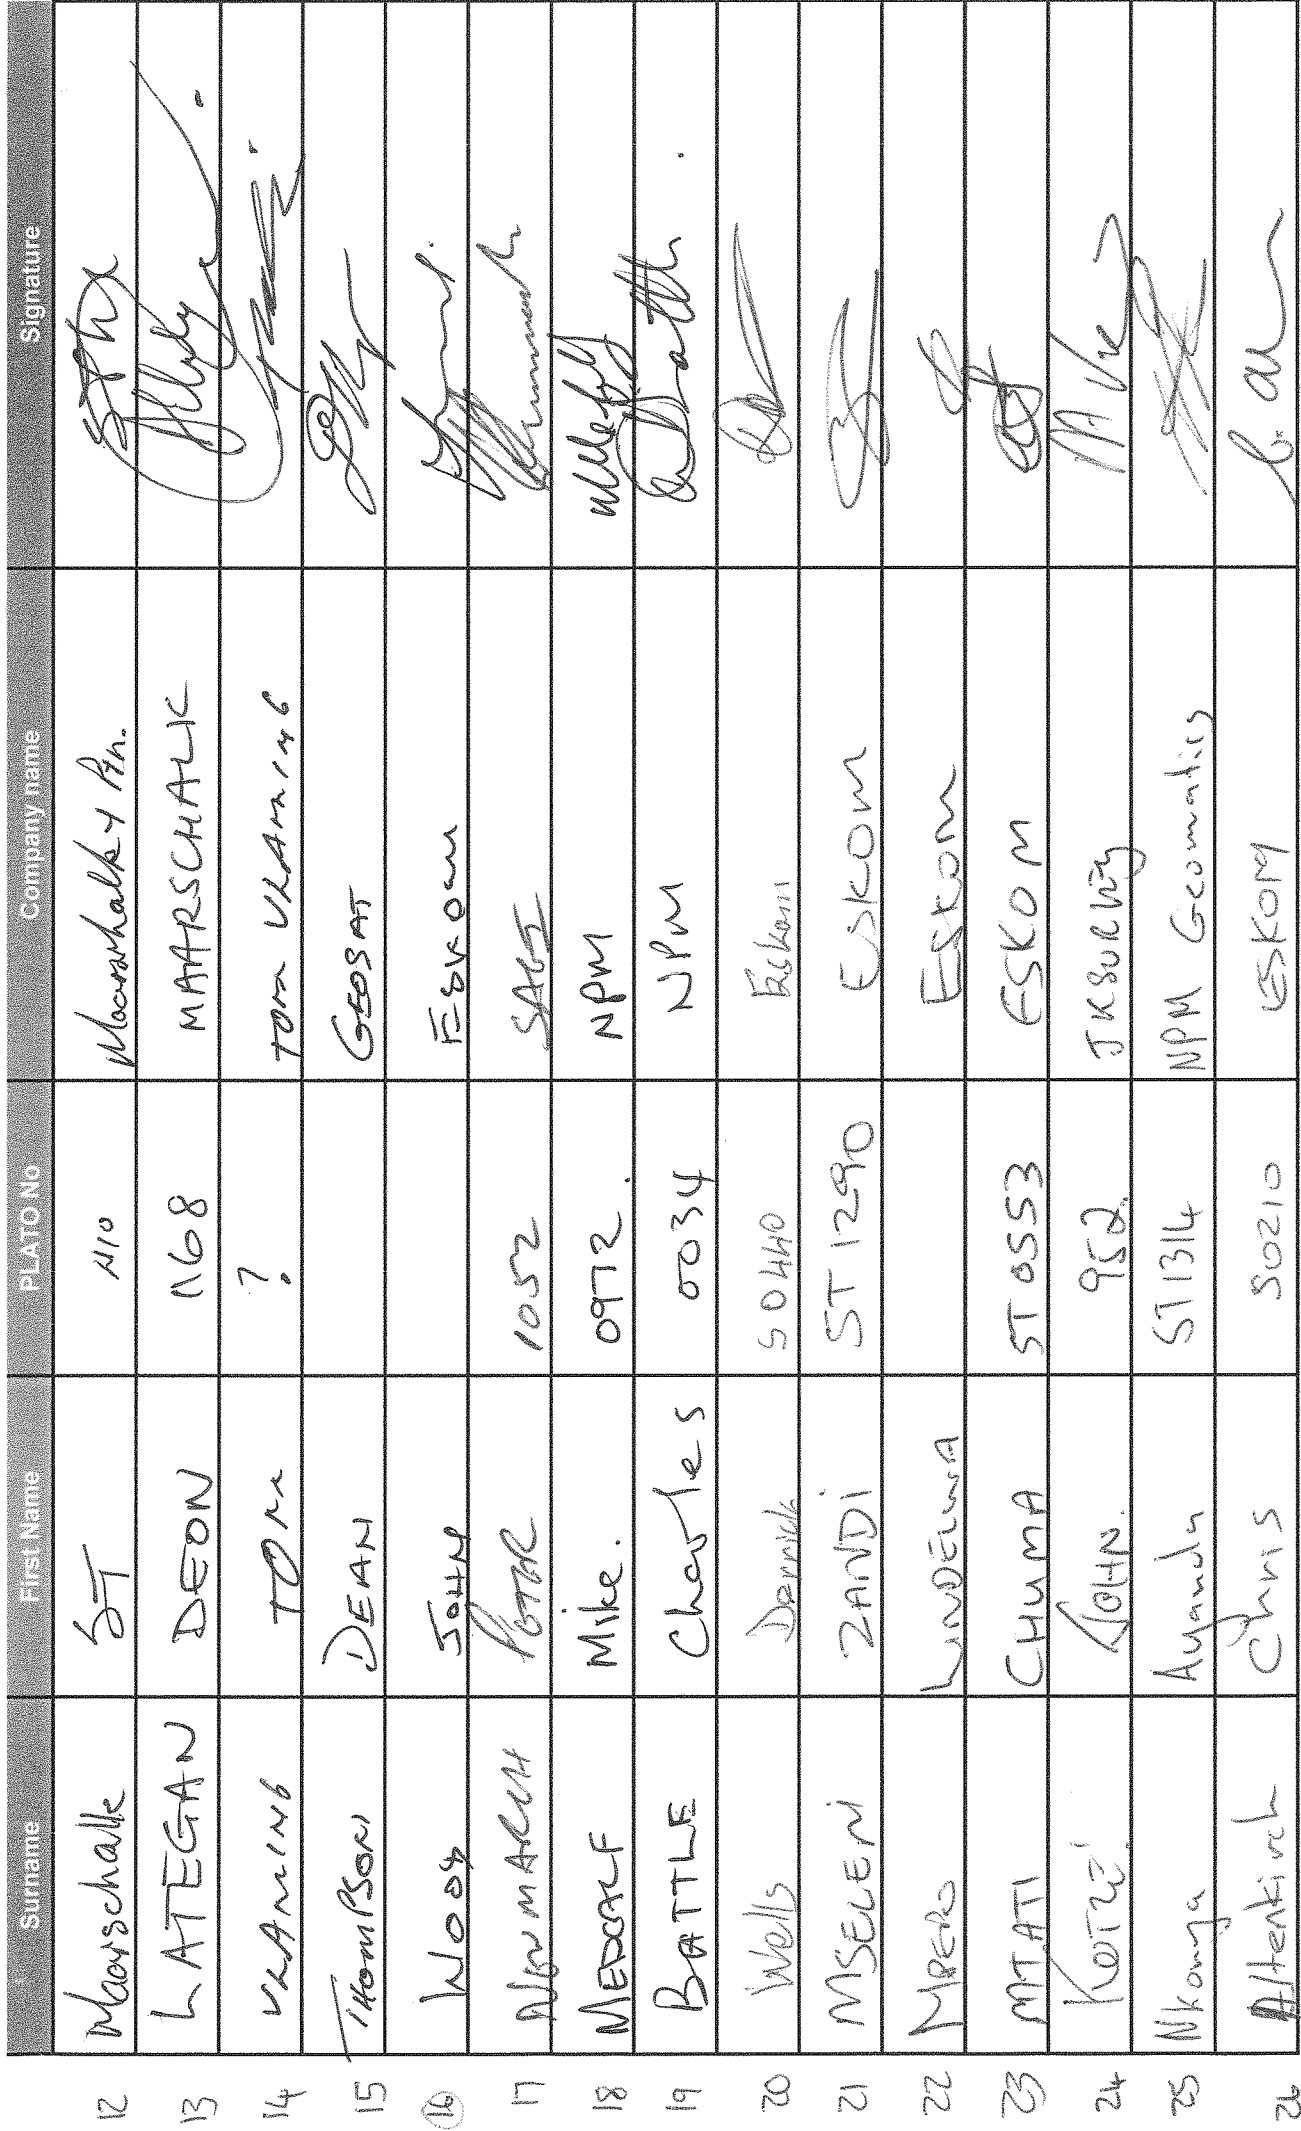 Surname First Name PLATO No Company name Signature
12 Maarschalk ST N10 Maarschalk & Ptn.
13 LATEGAN DEON 1168 MAARSCHALK
14 VLAMING TOM ? TOM VLAMING
15 THOMPSON DEAN GEOSAT
16 WOOD JOHN ESKOM
17 NEWMARCH PETER 1052 SAGI
18 MEDCALF Mike. 0972. NPM
19 BATTLE Charles 0034 NPM
20 Wells Derrick S0440 Eskom
21 MSELENI ZANDI ST1290 ESKOM
22 ESKOM
23 MTATI CHUMA ST0553 ESKOM
24 KOTZÉ JOHN. 952. JKSURVEY
25 Nkonya Ayanda ST1314 NPM Geomatics
26 Altenkirch Chris S0210 ESKOM